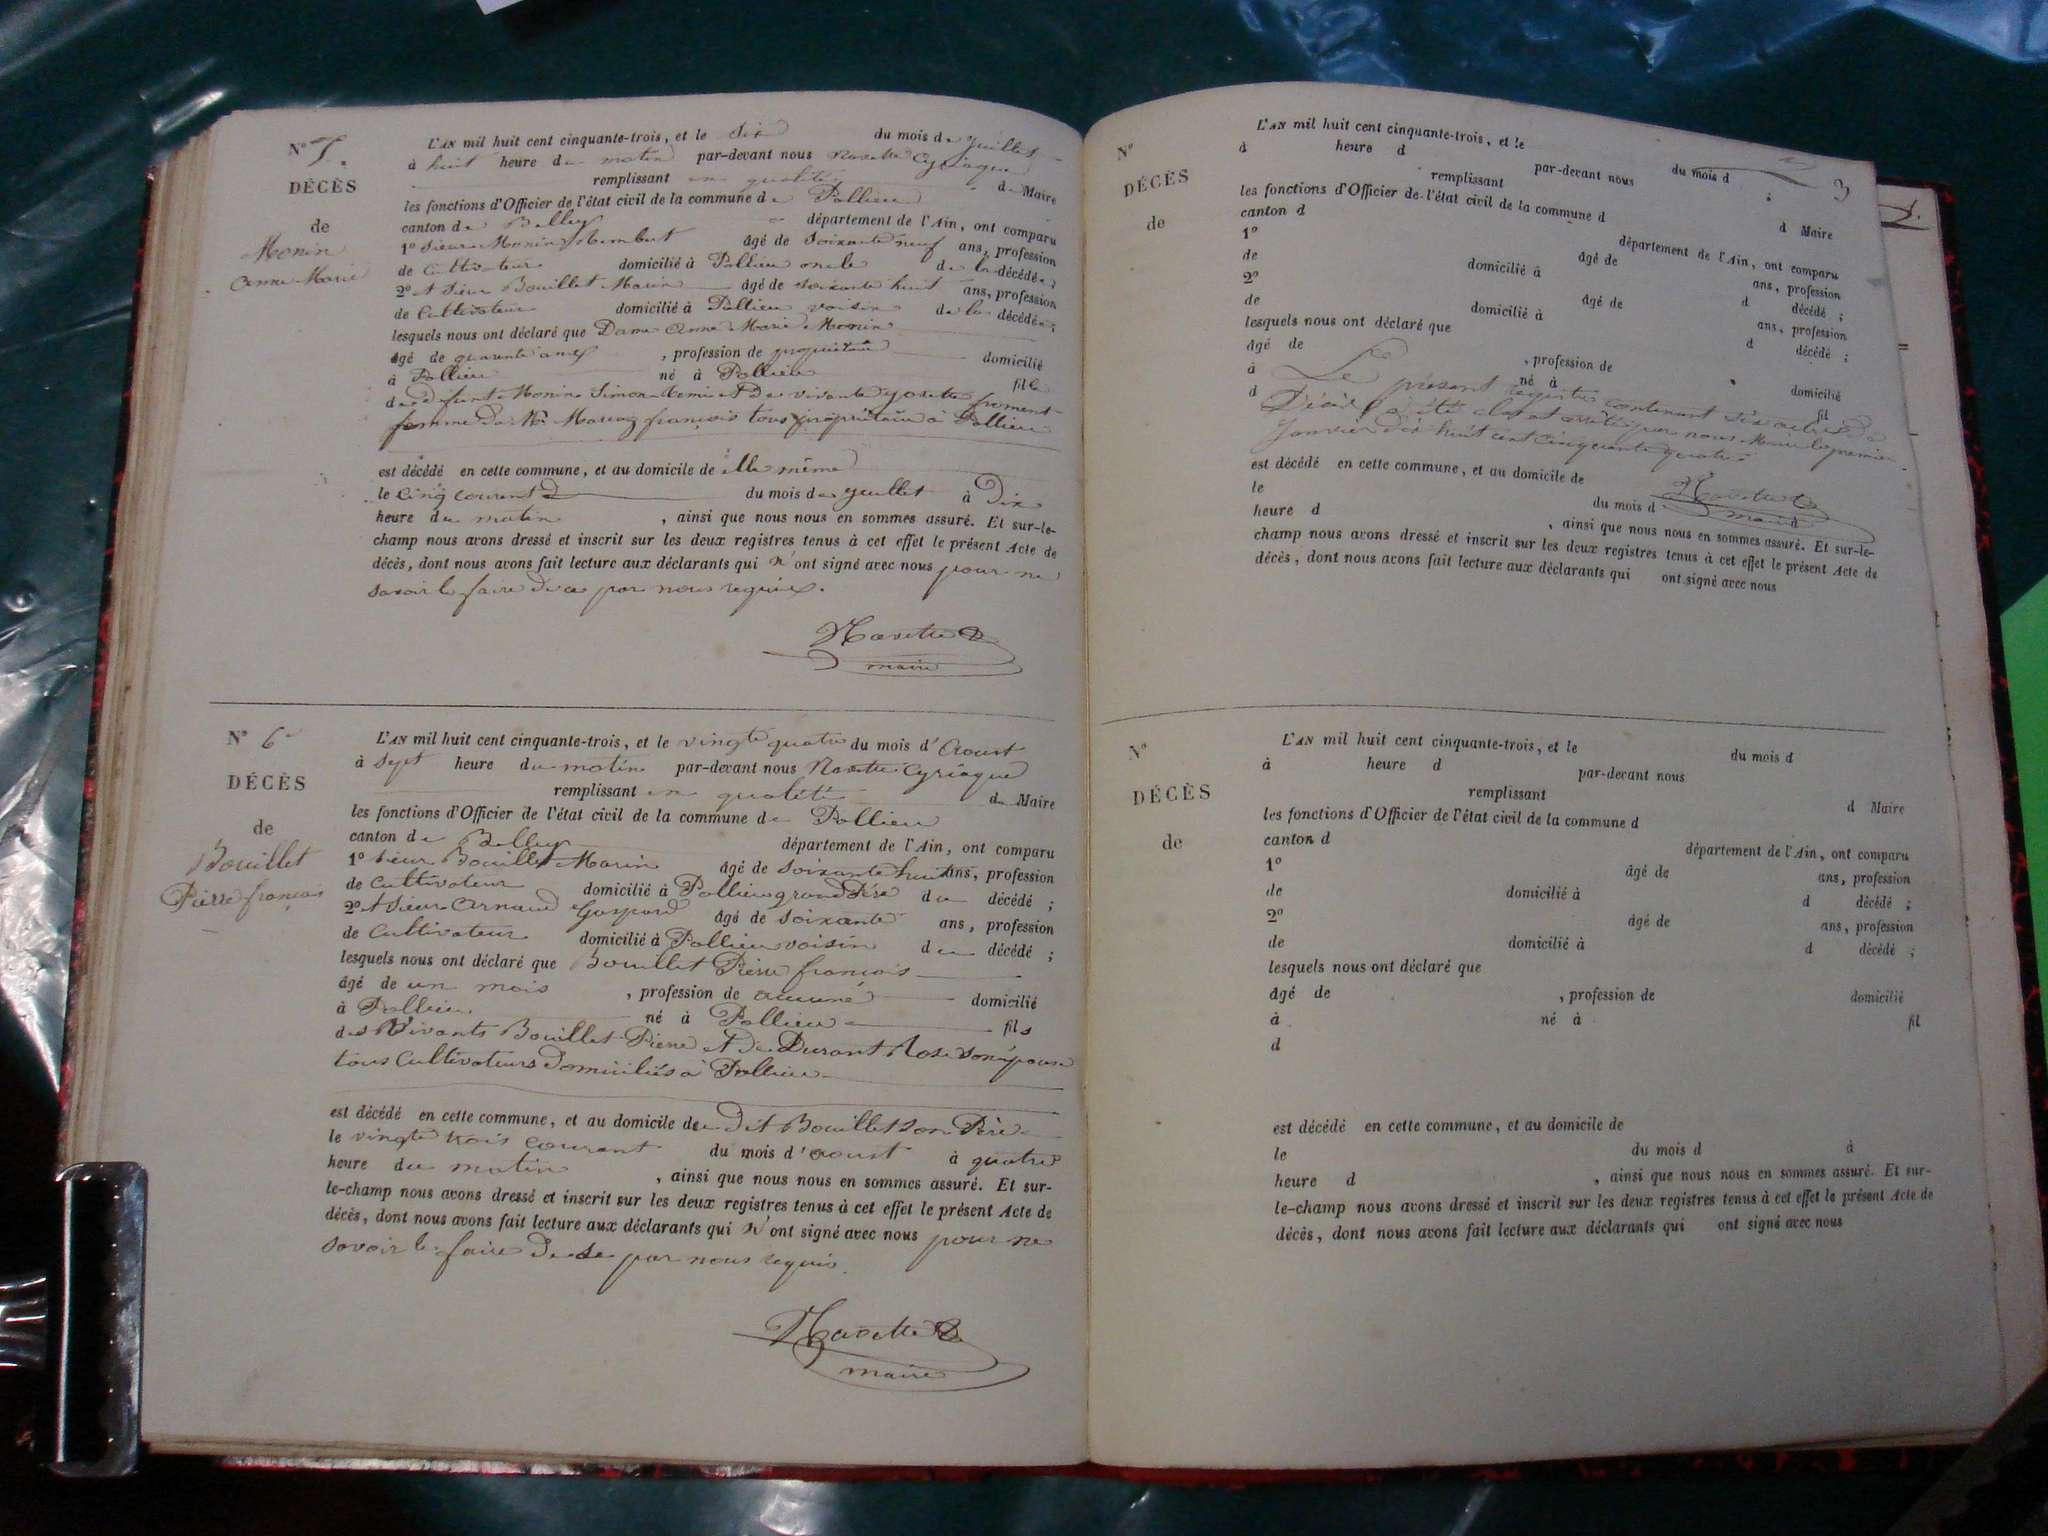 N° 5.
DÉCÈS
de
Monin
anne Marie
L'AN mil huit cent cinquante-trois, et le six du mois de juillet
à huit heure du matin par-devant nous Navette Cyriaque
remplissant en qualité de Maire
les fonctions d'Officier de l'état civil de la commune de Pollieu
canton de Belley département de l'Ain, ont comparu
1° sieur Monin Rembert âgé de soixante neuf ans, profession
de Cultivateur domicilié à Pollieu oncle de la décédée;
2° et sieur Bouillet Marin âgé de soixante huit ans, profession
de Cultivateur domicilié à Pollieu voisin de la décédée;
lesquels nous ont déclaré que Dame anne Marie Monin
âgé de quarante ans , profession de propriétaire domicilié
à Pollieu né à Pollieu fille
de defunt Monin Simon et De vivante Josette froment
femme de françois tous propriétaire à Pollieu
est décédé en cette commune, et au domicile de elle même
le cinq courant du mois de juillet à Dix
heure du matin , ainsi que nous nous en sommes assuré. Et sur-le-
champ nous avons dressé et inscrit sur les deux registres tenus à cet effet le présent Acte de
décès, dont nous avons fait lecture aux déclarants qui n'ont signé avec nous pour ne
savoir le faire de ce par nous requis.
Navette
maire
N° 6
DÉCÈS
de
Bouillet
Pierre françois
L'AN mil huit cent cinquante-trois, et le vingte quatre du mois d'Aoust
à sept heure du matin par-devant nous Navette Cyriaque
remplissant en qualité de Maire
les fonctions d'Officier de l'état civil de la commune de Pollieu
canton de Belley département de l'Ain, ont comparu
1° sieur Bouillet Marin âgé de soixante huit ans, profession
de Cultivateur domicilié à Pollieu grand Père du décédé;
2° et sieur Arnaud Gaspard âgé de soixante ans, profession
de Cultivateur domicilié à Pollieu voisin du décédé;
lesquels nous ont déclaré que Bouillet Pierre françois
âgé de un mois , profession de aucune domicilié
à Pollieu né à Pollieu fils
des Vivants Bouillet Pierre et De Durant Rose son épouse
tous Cultivateurs Domiciliés à Pollieu
est décédé en cette commune, et au domicile de Dit Bouillet son Père
le vingte trois courant du mois d'aoust à quatre
heure du matin , ainsi que nous nous en sommes assuré. Et sur-
le-champ nous avons dressé et inscrit sur les deux registres tenus à cet effet le présent Acte de
décès, dont nous avons fait lecture aux déclarants qui n'ont signé avec nous pour ne
savoir le faire De se par nous requis.
Navette
maire
3
N°
DÉCÈS
de
L'AN mil huit cent cinquante-trois, et le du mois d
à heure d par-devant nous
remplissant d Maire
les fonctions d'Officier de l'état civil de la commune d
canton d département de l'Ain, ont comparu
1° âgé de ans, profession
de domicilié à d décédé;
2° âgé de ans, profession
de domicilié à d décédé;
lesquels nous ont déclaré que
âgé de , profession de domicilié
à né à fil
d
Le présent registre contenant six actes de
Décès a été clos et arrêté par nous Maire le premier
Janvier dix huit cent cinquante quatre
est décédé en cette commune, et au domicile de
le du mois d à
heure d , ainsi que nous nous en sommes assuré. Et sur-le-
champ nous avons dressé et inscrit sur les deux registres tenus à cet effet le présent Acte de
décès, dont nous avons fait lecture aux déclarants qui ont signé avec nous
Navette
maire
N°
DÉCÈS
de
L'AN mil huit cent cinquante-trois, et le du mois d
à heure d par-devant nous
remplissant d Maire
les fonctions d'Officier de l'état civil de la commune d
canton d département de l'Ain, ont comparu
1° âgé de ans, profession
de domicilié à d décédé;
2° âgé de ans, profession
de domicilié à d décédé;
lesquels nous ont déclaré que
âgé de , profession de domicilié
à né à fil
d
est décédé en cette commune, et au domicile de
le du mois d à
heure d , ainsi que nous nous en sommes assuré. Et sur-
le-champ nous avons dressé et inscrit sur les deux registres tenus à cet effet le présent Acte de
décès, dont nous avons fait lecture aux déclarants qui ont signé avec nous